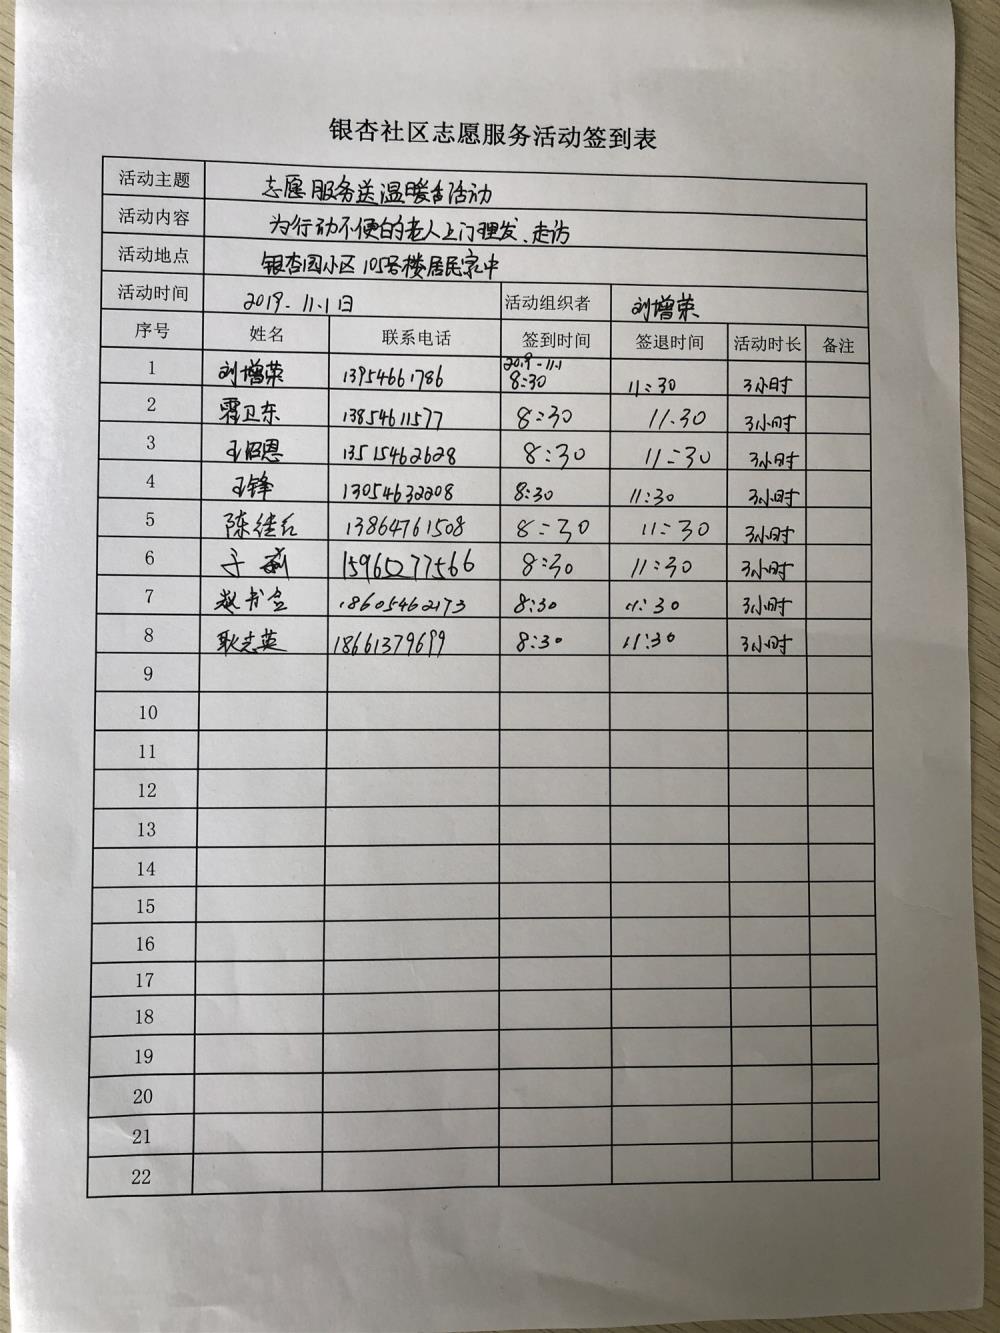 银杏社区志愿服务活动签到表
活动主题 志愿服务送温暖活动
活动内容 为行动不便的老人上门理发、走访
活动地点 银杏园小区105号楼居民家中
活动时间 2019.11.1日 活动组织者 刘增荣
序号 姓名 联系电话 签到时间 签退时间 活动时长 备注
1 刘增荣 13954661786 2019-11.1 8:30 11:30 3小时
2 霍卫东 13854611577 8:30 11.30 3小时
3 13515462628 8:30 11:30 3小时
4 王锋 13054632208 8:30 11:30 3小时
5 13864761508 8:30 11:30 3小时
6 15965277566 8:30 11:30 3小时
7 18605462173 8:30 11:30 3小时
8 耿志英 18661379699 8:30 11:30 3小时
9
10
11
12
13
14
15
16
17
18
19
20
21
22